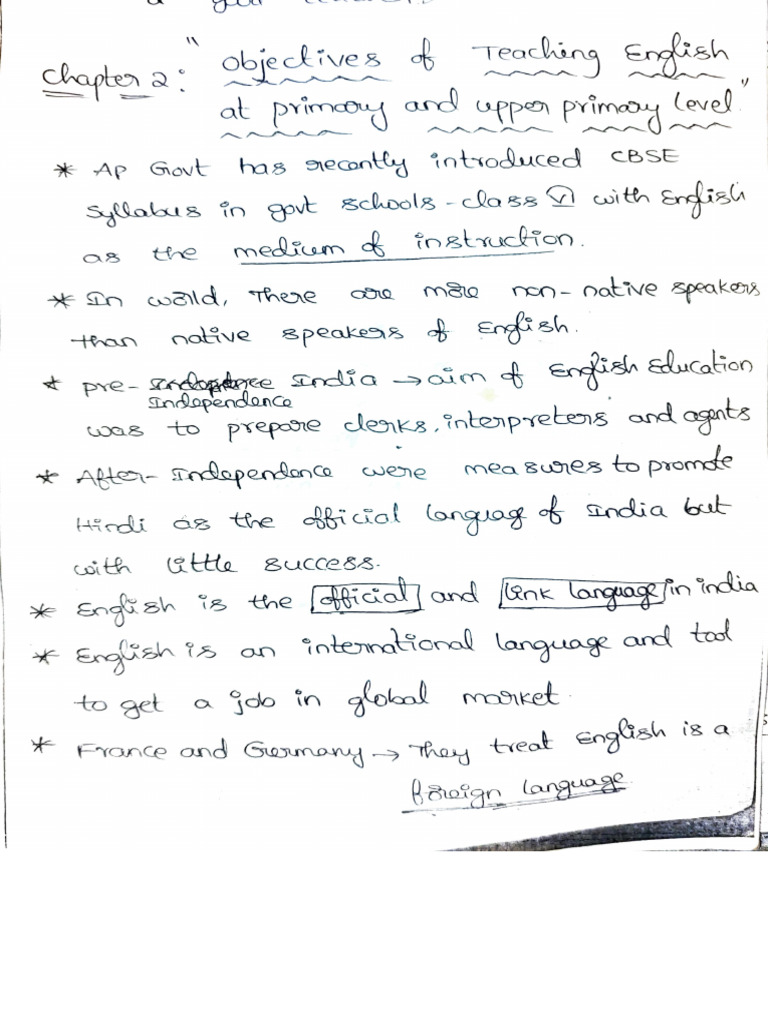 a
Chapter 2: "Objectives of Teaching English
at primary and upper primary level"
* AP Govt has recently introduced CBSE
syllabus in govt schools - class VI with English
as the medium of instruction.
* In world, There are more non-native speakers
than native speakers of English.
* Pre- Independence India → aim of English Education
was to prepare clerks, interpreters and agents
* After-Independence were measures to promote
Hindi as the official languag of India but
with little success.
* English is the official and link language in india
* English is an international language and tool
to get a job in global market.
* France and Germany → They treat English is a
foreign language